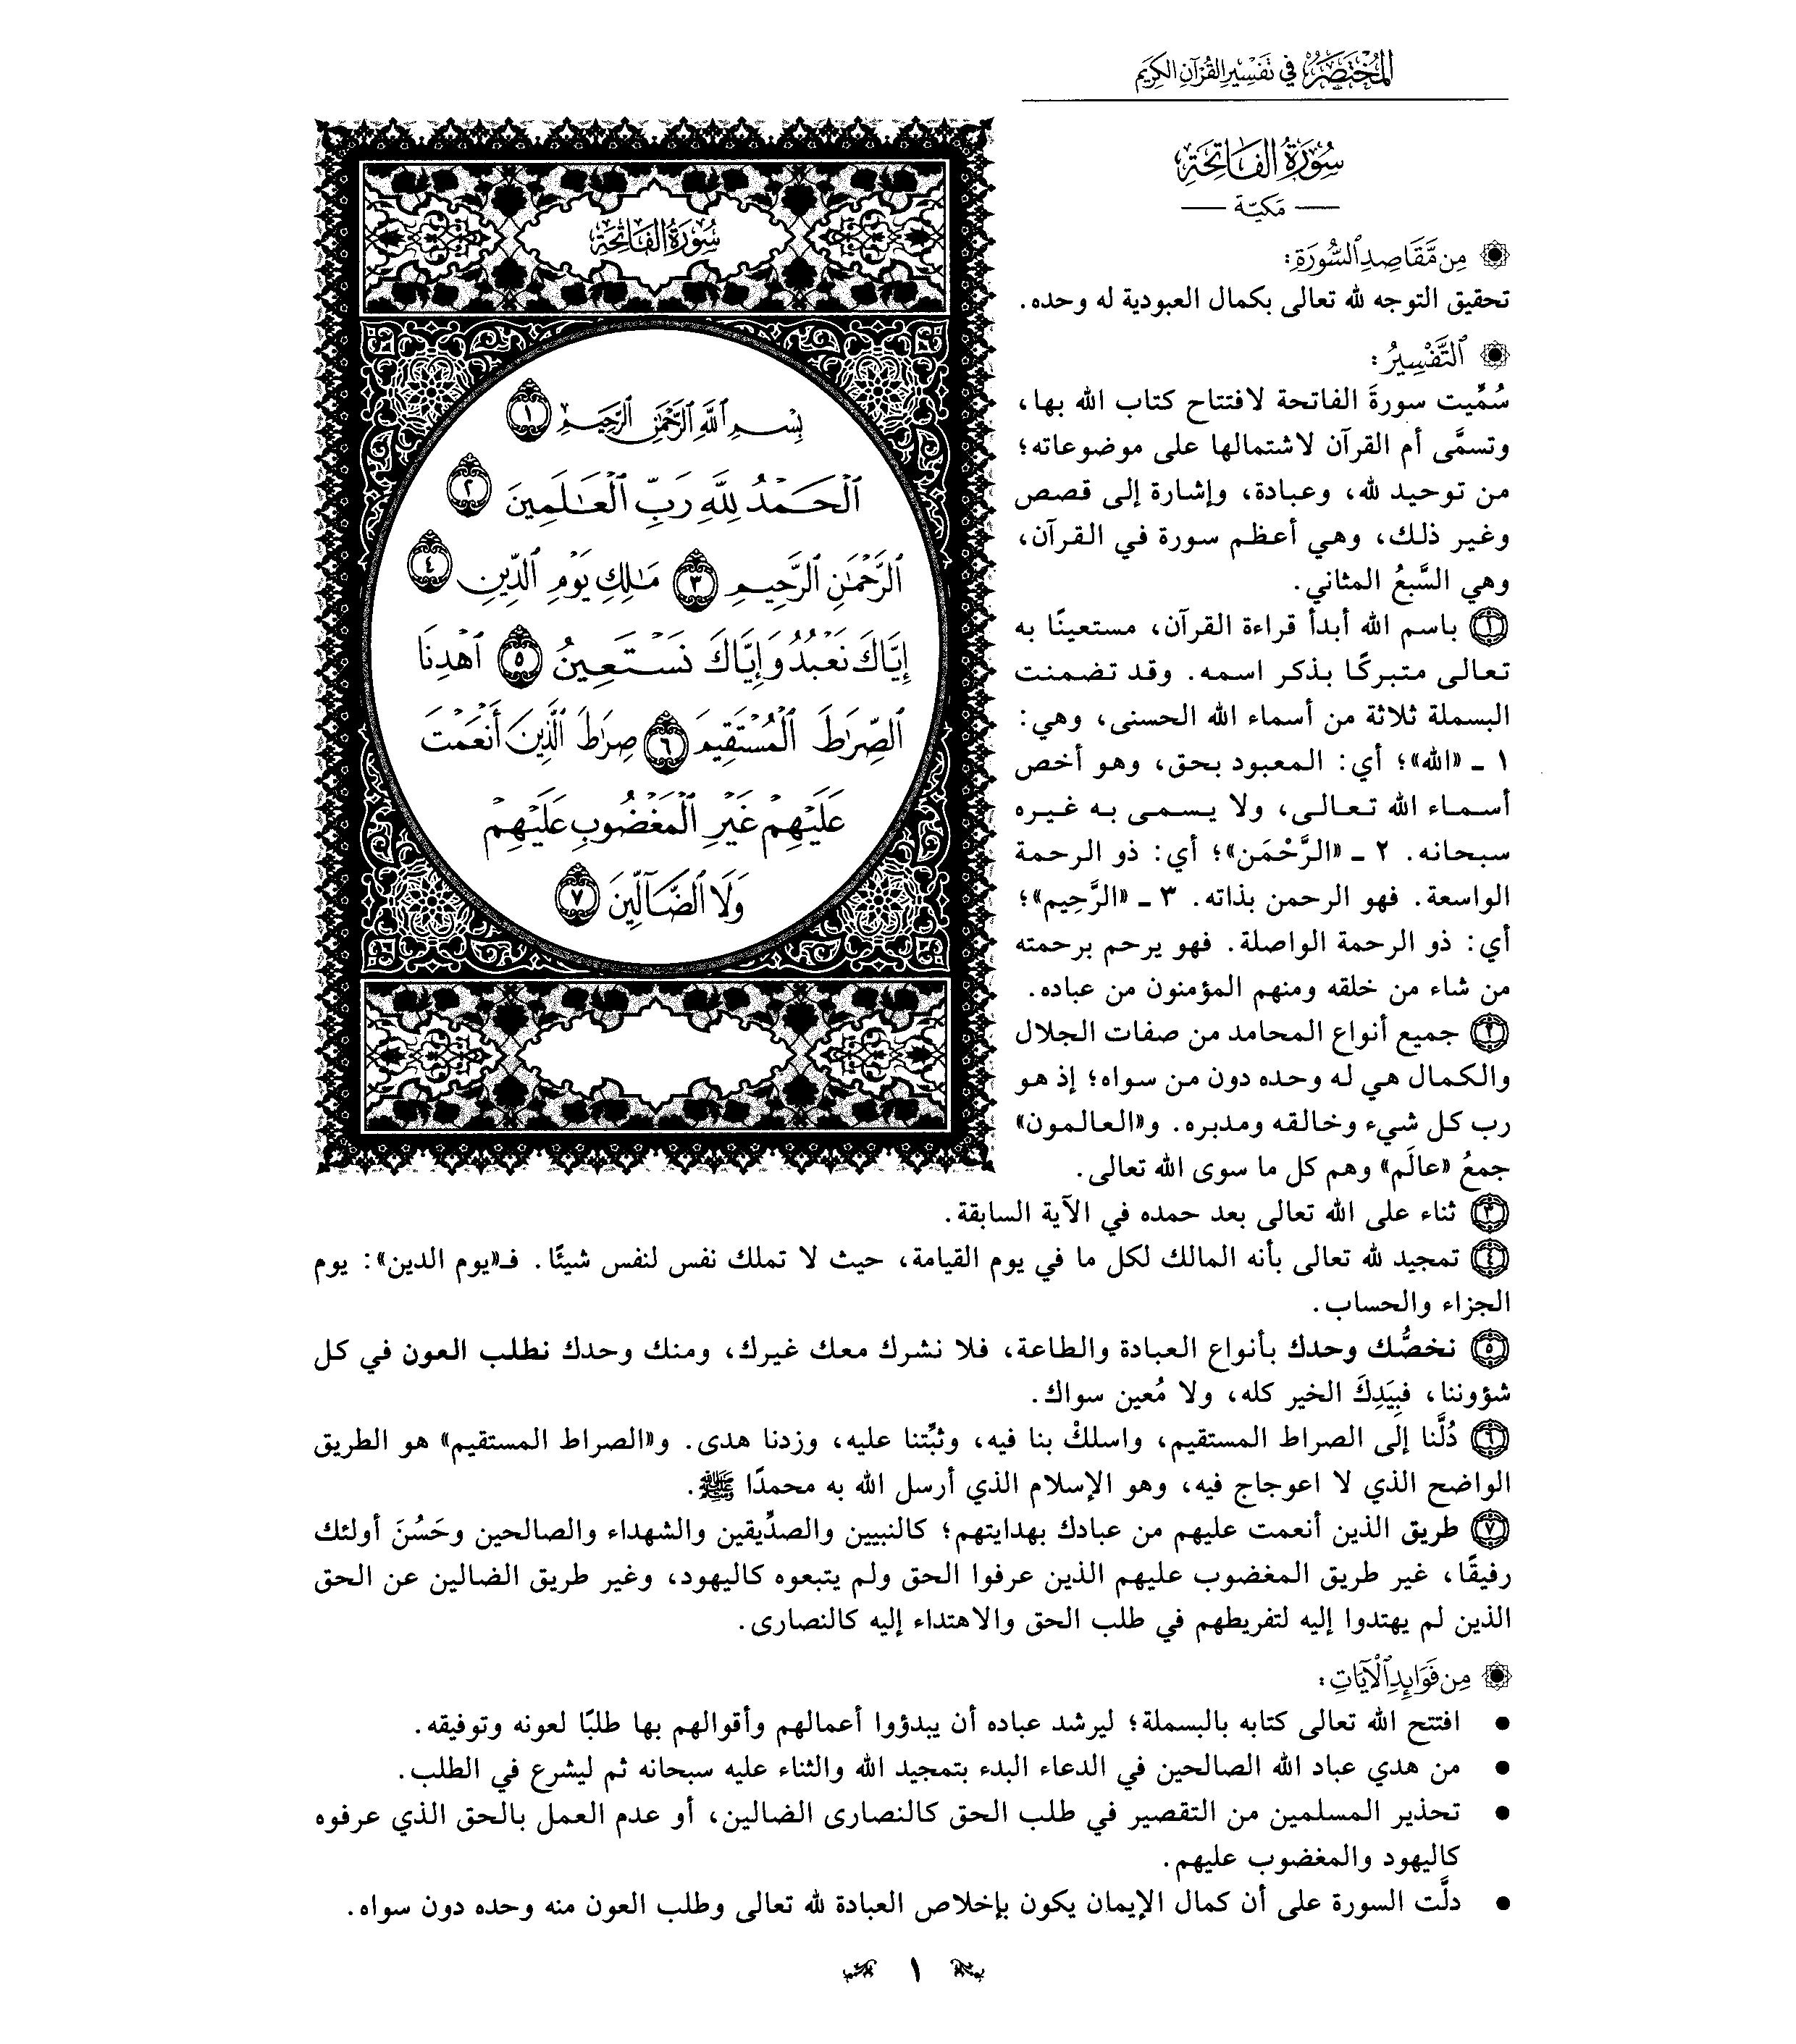 المُخْتَصَرُ في تَفْسِيرِ القُرْآنِ الكَرِيمِ
سُورَةُ الفَاتِحَةِ
— مَكيّة —
مِن مَّقَاصِدِ ٱلسُّورَةِ:
تحقيق التوجه لله تعالى بكمال العبودية له وحده.
ٱلتَّفْسِيرُ:
سُمِّيت سورةَ الفاتحة لافتتاح كتاب الله بها،
وتسمَّى أم القرآن لاشتمالها على موضوعاته؛
من توحيد لله، وعبادة، وإشارة إلى قصص
وغير ذلك، وهي أعظم سورة في القرآن،
وهي السَّبعُ المثاني.
١ باسم الله أبدأ قراءة القرآن، مستعينًا به
تعالى متبركًا بذكر اسمه. وقد تضمنت
البسملة ثلاثة من أسماء الله الحسنى، وهي:
١ ـ «الله»؛ أي: المعبود بحق، وهو أخص
أسماء الله تعالى، ولا يسمى به غيره
سبحانه. ٢ ـ «الرَّحْمَن»؛ أي: ذو الرحمة
الواسعة. فهو الرحمن بذاته. ٣ ـ «الرَّحِيم»؛
أي: ذو الرحمة الواصلة. فهو يرحم برحمته
من شاء من خلقه ومنهم المؤمنون من عباده.
٢ جميع أنواع المحامد من صفات الجلال
والكمال هي له وحده دون من سواه؛ إذ هو
رب كل شيء وخالقه ومدبره. و«العالمون»
جمعُ «عالَم» وهم كل ما سوى الله تعالى.
سُورَةُ الفَاتِحَةِ
بِسْمِ ٱللَّهِ ٱلرَّحْمَٰنِ ٱلرَّحِيمِ ١
ٱلْحَمْدُ لِلَّهِ رَبِّ ٱلْعَٰلَمِينَ ٢
ٱلرَّحْمَٰنِ ٱلرَّحِيمِ ٣ مَٰلِكِ يَوْمِ ٱلدِّينِ ٤
إِيَّاكَ نَعْبُدُ وَإِيَّاكَ نَسْتَعِينُ ٥ ٱهْدِنَا
ٱلصِّرَٰطَ ٱلْمُسْتَقِيمَ ٦ صِرَٰطَ ٱلَّذِينَ أَنْعَمْتَ
عَلَيْهِمْ غَيْرِ ٱلْمَغْضُوبِ عَلَيْهِمْ
وَلَا ٱلضَّآلِّينَ ٧
٣ ثناء على الله تعالى بعد حمده في الآية السابقة.
٤ تمجيد لله تعالى بأنه المالك لكل ما في يوم القيامة، حيث لا تملك نفس لنفس شيئًا. فـ«يوم الدين»: يوم
الجزاء والحساب.
٥ نخصُّك وحدك بأنواع العبادة والطاعة، فلا نشرك معك غيرك، ومنك وحدك نطلب العون في كل
شؤوننا، فبِيَدِكَ الخير كله، ولا مُعين سواك.
٦ دُلَّنا إلى الصراط المستقيم، واسلكْ بنا فيه، وثبِّتنا عليه، وزدنا هدى. و«الصراط المستقيم» هو الطريق
الواضح الذي لا اعوجاج فيه، وهو الإسلام الذي أرسل الله به محمدًا ﷺ.
٧ طريق الذين أنعمت عليهم من عبادك بهدايتهم؛ كالنبيين والصدِّيقين والشهداء والصالحين وحَسُنَ أولئك
رفيقًا، غير طريق المغضوب عليهم الذين عرفوا الحق ولم يتبعوه كاليهود، وغير طريق الضالين عن الحق
الذين لم يهتدوا إليه لتفريطهم في طلب الحق والاهتداء إليه كالنصارى.
مِن فَوَائِدِ ٱلْآيَاتِ:
● افتتح الله تعالى كتابه بالبسملة؛ ليرشد عباده أن يبدؤوا أعمالهم وأقوالهم بها طلبًا لعونه وتوفيقه.
● من هدي عباد الله الصالحين في الدعاء البدء بتمجيد الله والثناء عليه سبحانه ثم ليشرع في الطلب.
● تحذير المسلمين من التقصير في طلب الحق كالنصارى الضالين، أو عدم العمل بالحق الذي عرفوه
كاليهود والمغضوب عليهم.
● دلَّت السورة على أن كمال الإيمان يكون بإخلاص العبادة لله تعالى وطلب العون منه وحده دون سواه.
١